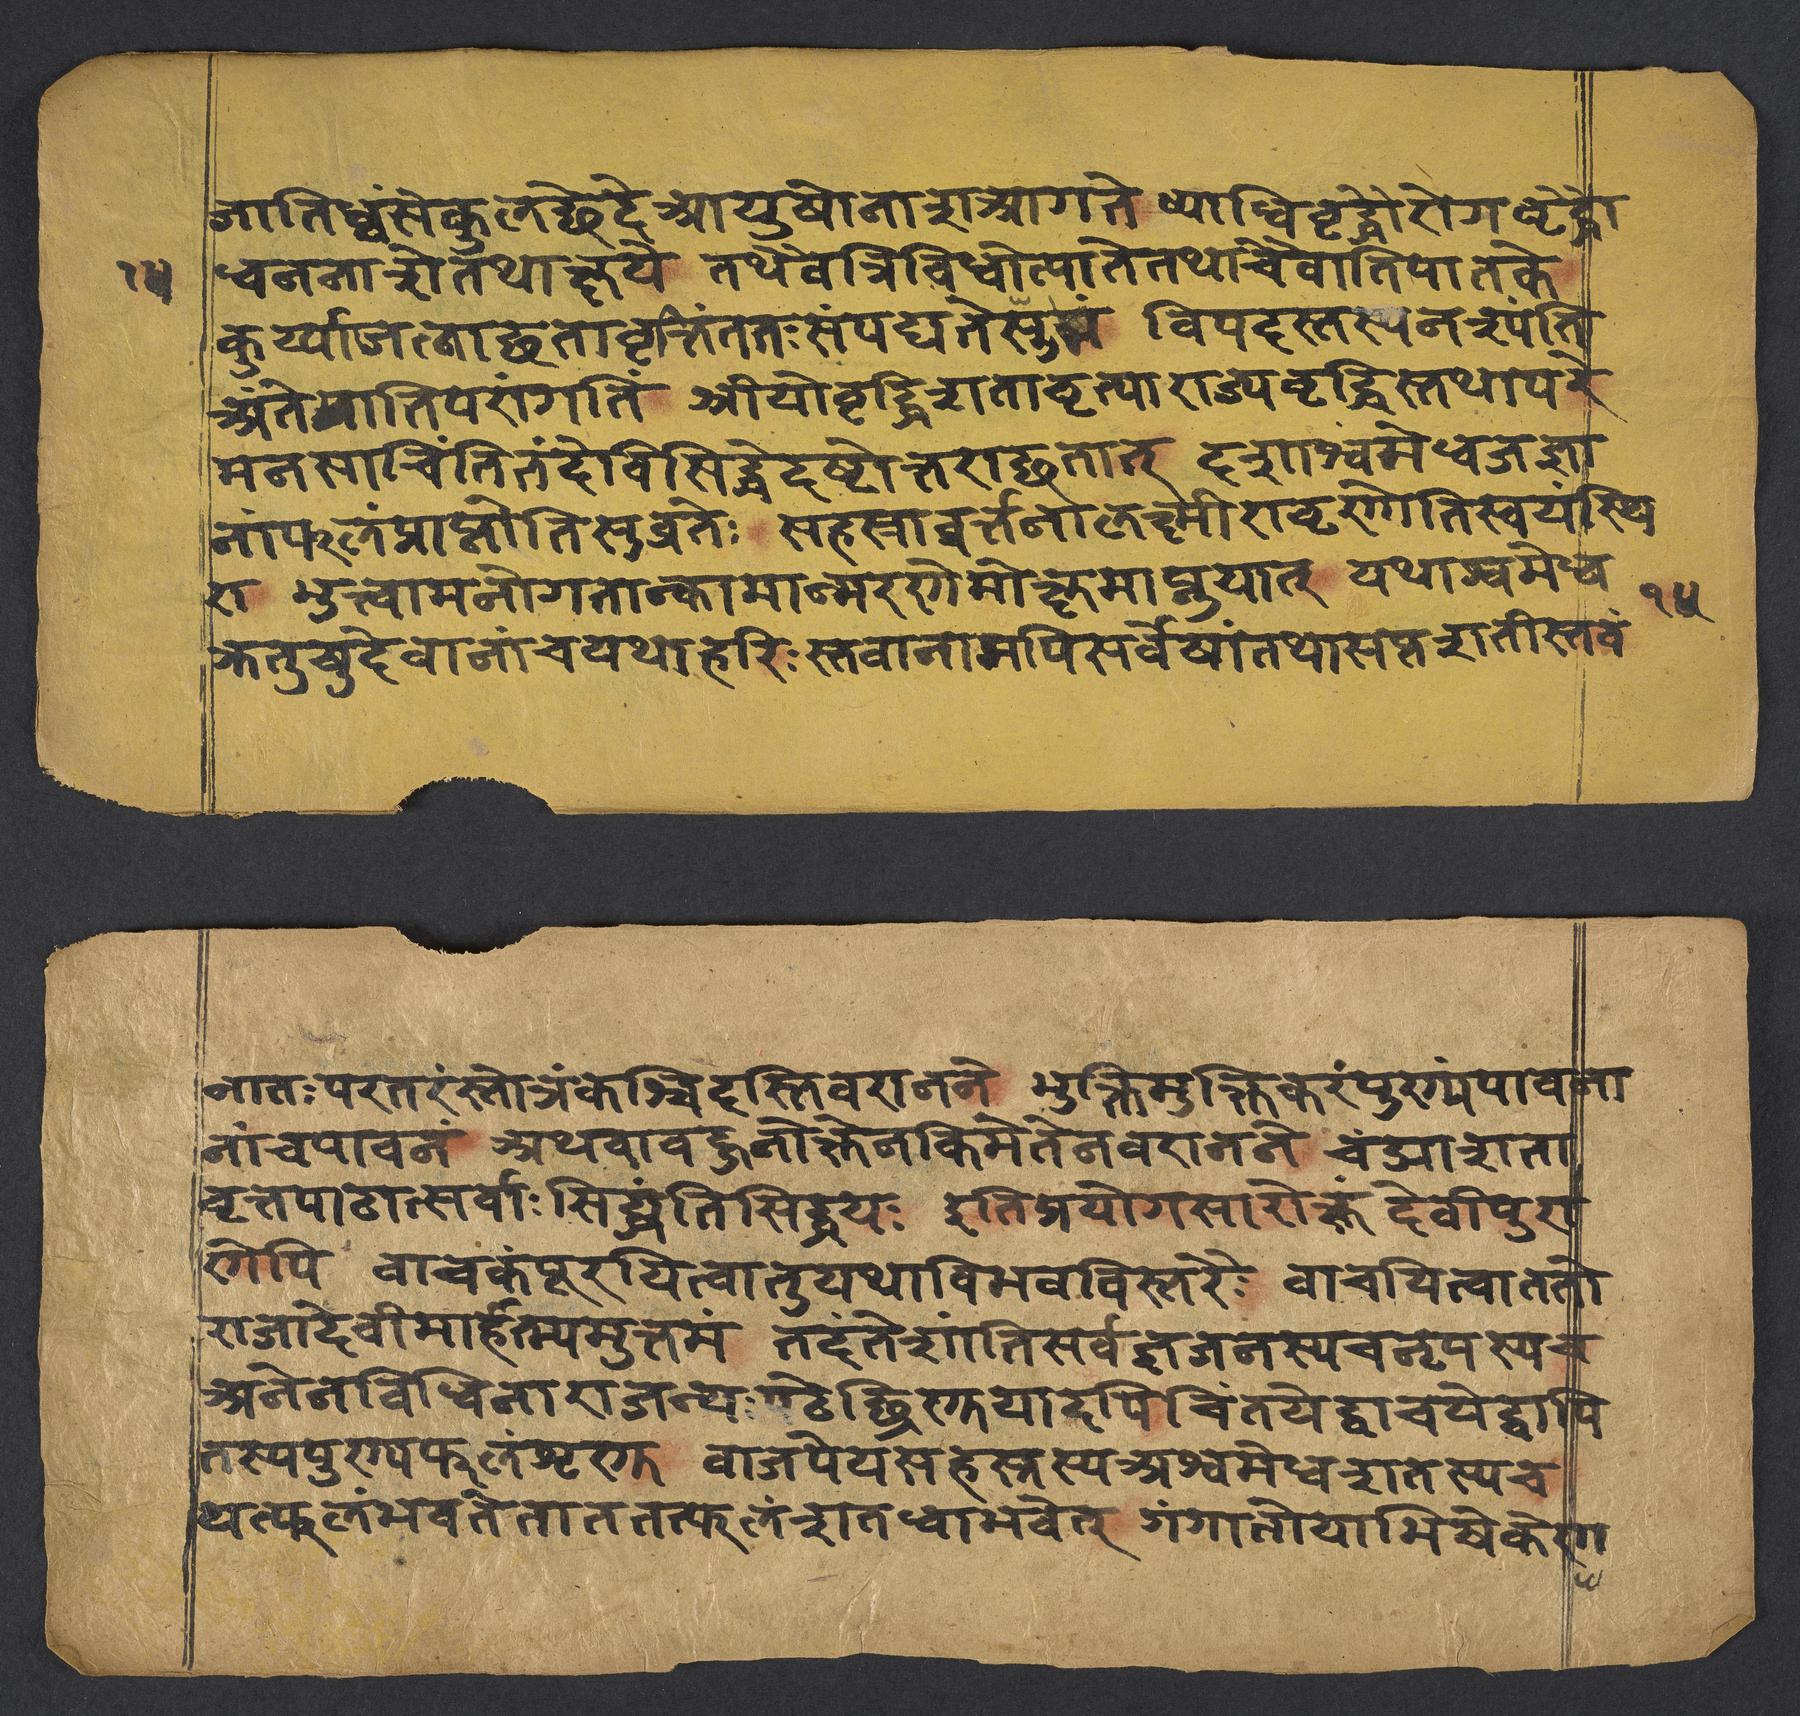 जातिध्वंसेकुलच्छेदेआयुषोनाशआगते व्याधिवृद्धौरोगवृद्धौ
१५ धननाशेतथाक्षये तथैवत्रिविधोत्पातेतथाचैवातिपातके
कुर्य्याजत्नाछतावृत्तिंततःसंपद्यतेसुखं विपदस्तस्यनश्यंति
अंतेयातिपरांगतिं श्रीयोवृद्धिशतावृत्याराज्यवृद्धिस्तथापरे
मनसाचिंतितंदेविसिद्धेदष्टोत्तराछतात् दशाश्वमेधजज्ञा
नांफलंप्राप्नोतिसुव्रतेः सहस्रावर्त्तनाल्लक्ष्मीरावृणोतिस्वयंस्थि
रा भुत्त्कामनोगतान्कामान्मरणेमोक्षमाप्नुयात् यथाश्वमेध १५
क्रतुषुदेवानांचयथाहरिः स्तवानामपिसर्वेषांतथासप्तशतीस्तवं
नातःपरतरंस्तोत्रंकंश्चिदस्तिवरानने भुक्तिमुक्तिकरंपुण्यंपावना
नांचपावनं अथवावहुनोक्तेनकिमेतेनवरानने चंड्याशता
वृत्तपाठात्सर्वाःसिद्ध्यंतिसिद्धयः इतिप्रयोगसारोक्तं देवीपुरा
णेपि वाचकंपूरयित्वातुयथाविभवविस्तरैः वाचयित्वाततो
राजादेवीमार्हत्म्यमुत्तमं तदंतेशांतिसर्वज्ञजनस्यचनृपस्यच
अनेनविधिनाराजन्यःपठेच्छ्रिणुयादपि चिंतयेद्वाचयेद्वापि
तस्यपुण्यफलंशृणु वाजपेयसहस्रस्यअश्वमेधशतस्यच
यत्फलंभवतेतातततत्फलंशतधाभवेत् गंगातोयाभिषेकेण